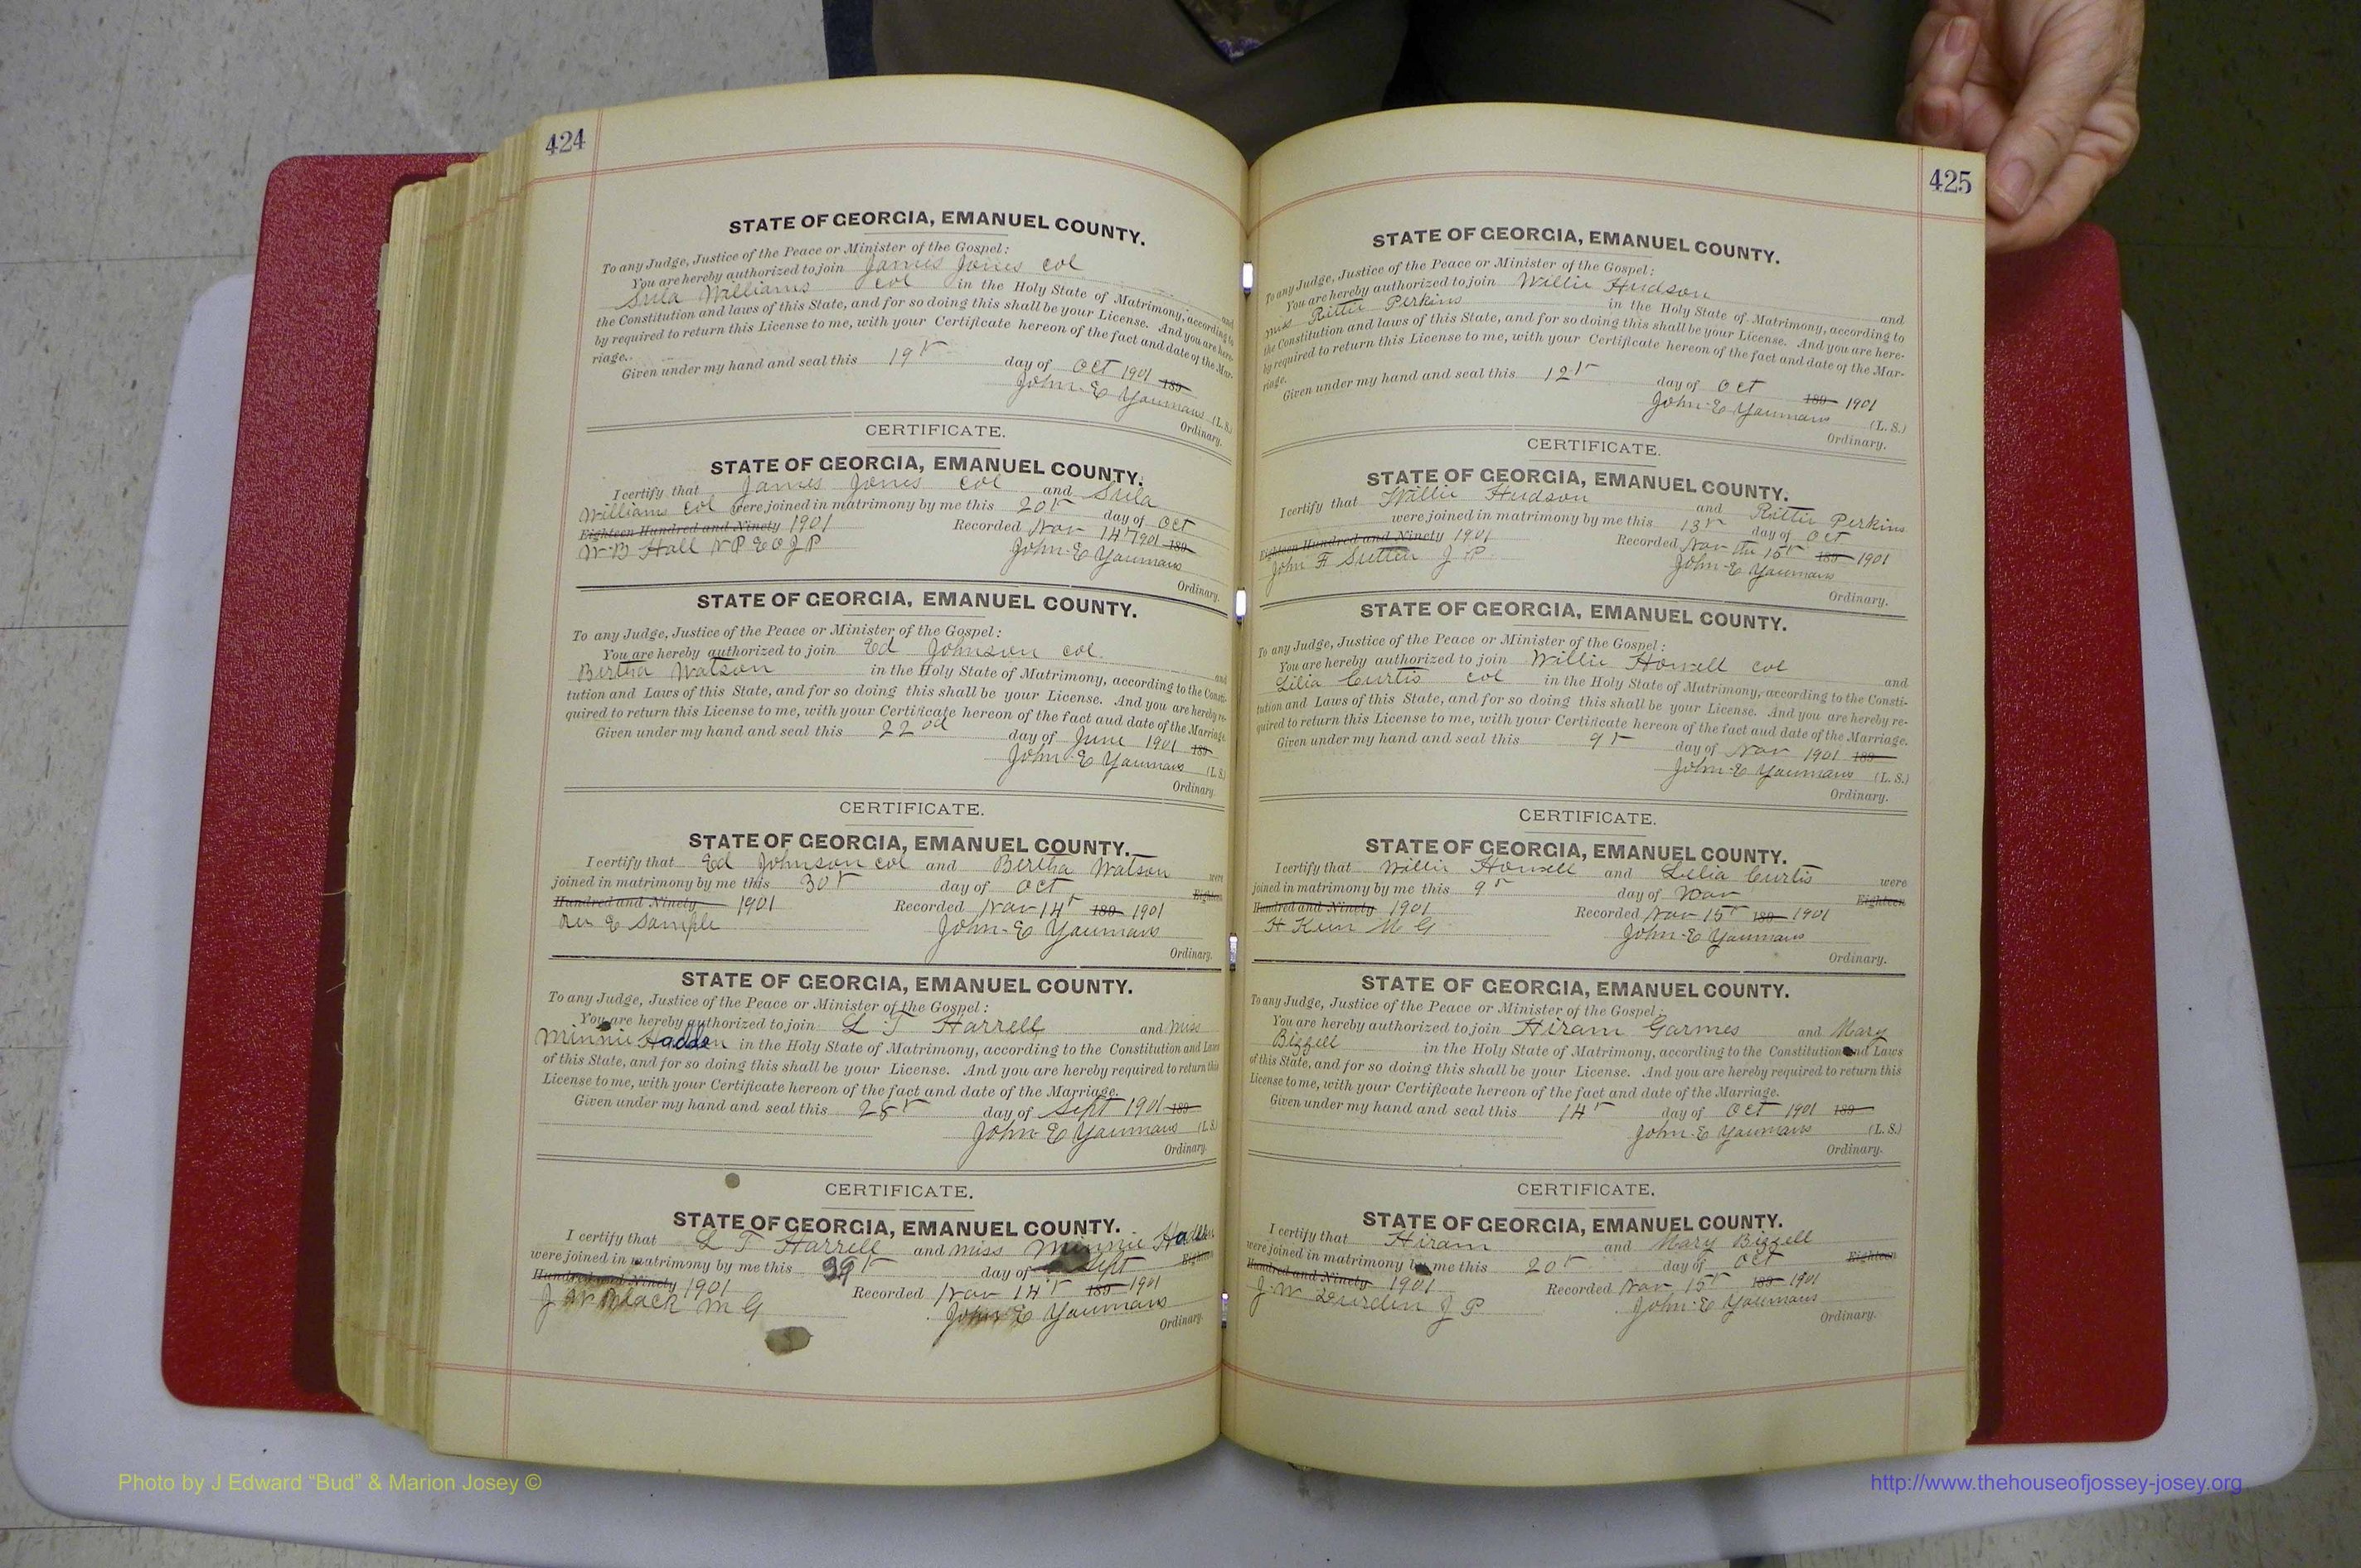 424
STATE OF GEORGIA, EMANUEL COUNTY.
To any Judge, Justice of the Peace or Minister of the Gospel:
You are hereby authorized to join James Jones col and
Williams col in the Holy State of Matrimony, according to
the Constitution and laws of this State, and for so doing this shall be your License. And you are here-
by required to return this License to me, with your Certificate hereon of the fact and date of the Mar-
riage.
Given under my hand and seal this 19 day of Oct 1901 189
John E Youmans (L. S.)
Ordinary.
CERTIFICATE.
STATE OF GEORGIA, EMANUEL COUNTY.
I certify that James Jones col and
Williams col were joined in matrimony by me this 20 day of Oct
Eighteen Hundred and Ninety 1901 Recorded Nov 14 1901 189
W B Hall N P E O J P John E Youmans
Ordinary.
STATE OF GEORGIA, EMANUEL COUNTY.
To any Judge, Justice of the Peace or Minister of the Gospel:
You are hereby authorized to join Ed Johnson col. and
Bertha Watson in the Holy State of Matrimony, according to the Consti-
tution and Laws of this State, and for so doing this shall be your License. And you are hereby re-
quired to return this License to me, with your Certificate hereon of the fact and date of the Marriage.
Given under my hand and seal this 22nd day of June 1901 189
John E Youmans (L. S.)
Ordinary.
CERTIFICATE.
STATE OF GEORGIA, EMANUEL COUNTY.
I certify that Ed Johnson col and Bertha Watson were
joined in matrimony by me this 30 day of Oct Eighteen
Hundred and Ninety 1901 Recorded Nov 14 189 1901
Rev E Sample John E Youmans
Ordinary.
STATE OF GEORGIA, EMANUEL COUNTY.
To any Judge, Justice of the Peace or Minister of the Gospel:
You are hereby authorized to join L T Harrell and Miss
Minnie Hadden in the Holy State of Matrimony, according to the Constitution and Laws
of this State, and for so doing this shall be your License. And you are hereby required to return this
License to me, with your Certificate hereon of the fact and date of the Marriage.
Given under my hand and seal this 28 day of Sept 1901 189
John E Youmans (L. S.)
Ordinary.
CERTIFICATE.
STATE OF GEORGIA, EMANUEL COUNTY.
I certify that L T Harrell and Miss Minnie Hadden
were joined in matrimony by me this 29 day of Sept Eighteen
Hundred and Ninety 1901 Recorded Nov 14 189 1901
J W Black M G John E Youmans
Ordinary.
425
STATE OF GEORGIA, EMANUEL COUNTY.
To any Judge, Justice of the Peace or Minister of the Gospel:
You are hereby authorized to join Willie Hudson and
Miss Rittie Perkins in the Holy State of Matrimony, according to
the Constitution and laws of this State, and for so doing this shall be your License. And you are here-
by required to return this License to me, with your Certificate hereon of the fact and date of the Mar-
riage.
Given under my hand and seal this 12 day of Oct 189 1901
John E Youmans (L. S.)
Ordinary.
CERTIFICATE.
STATE OF GEORGIA, EMANUEL COUNTY.
I certify that Willie Hudson and Rittie Perkins
were joined in matrimony by me this 13 day of Oct
Eighteen Hundred and Ninety 1901 Recorded Nov the 15 189 1901
John F Sutten J P John E Youmans
Ordinary.
STATE OF GEORGIA, EMANUEL COUNTY.
To any Judge, Justice of the Peace or Minister of the Gospel:
You are hereby authorized to join Willie Howell col and
Lilia Curtis col in the Holy State of Matrimony, according to the Consti-
tution and Laws of this State, and for so doing this shall be your License. And you are hereby re-
quired to return this License to me, with your Certificate hereon of the fact and date of the Marriage.
Given under my hand and seal this 9 day of Nov 1901 189
John E Youmans (L. S.)
Ordinary.
CERTIFICATE.
STATE OF GEORGIA, EMANUEL COUNTY.
I certify that Willie Howell and Lilia Curtis were
joined in matrimony by me this 9 day of Nov Eighteen
Hundred and Ninety 1901 Recorded Nov 15 189 1901
H M G John E Youmans
Ordinary.
STATE OF GEORGIA, EMANUEL COUNTY.
To any Judge, Justice of the Peace or Minister of the Gospel:
You are hereby authorized to join Hiram Garmes and Mary
Bizzell in the Holy State of Matrimony, according to the Constitution and Laws
of this State, and for so doing this shall be your License. And you are hereby required to return this
License to me, with your Certificate hereon of the fact and date of the Marriage.
Given under my hand and seal this 14 day of Oct 1901 189
John E Youmans (L. S.)
Ordinary.
CERTIFICATE.
STATE OF GEORGIA, EMANUEL COUNTY.
I certify that Hiram and Mary Bizzell
were joined in matrimony by me this 20 day of Oct Eighteen
Hundred and Ninety 1901 Recorded Nov 15 189 1901
J W Durden J P John E Youmans
Ordinary.
Photo by J Edward "Bud" & Marion Josey ©
http://www.thehouseofjossey-josey.org